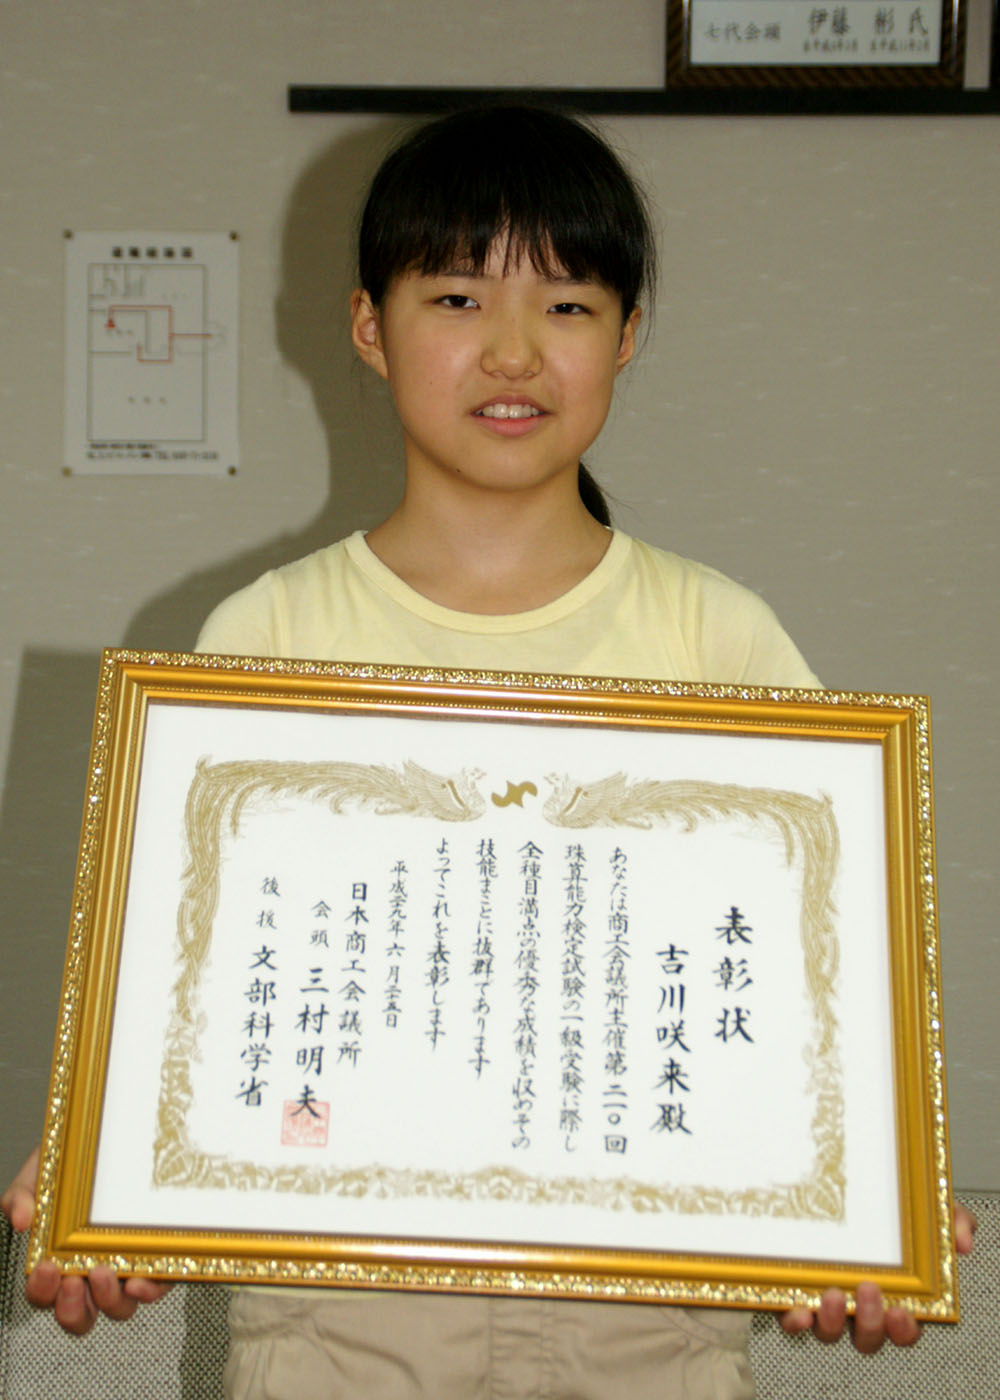 七代会頭 伊藤 彬 氏
表彰状
吉川咲来殿
あなたは商工会議所主催第二一〇回
珠算能力検定試験の一級受験に際し
全種目満点の優秀な成績を収めその
技能まことに抜群であります
よってこれを表彰します
平成二九年六月二五日
日本商工会議所
会頭 三村明夫
後援 文部科学省